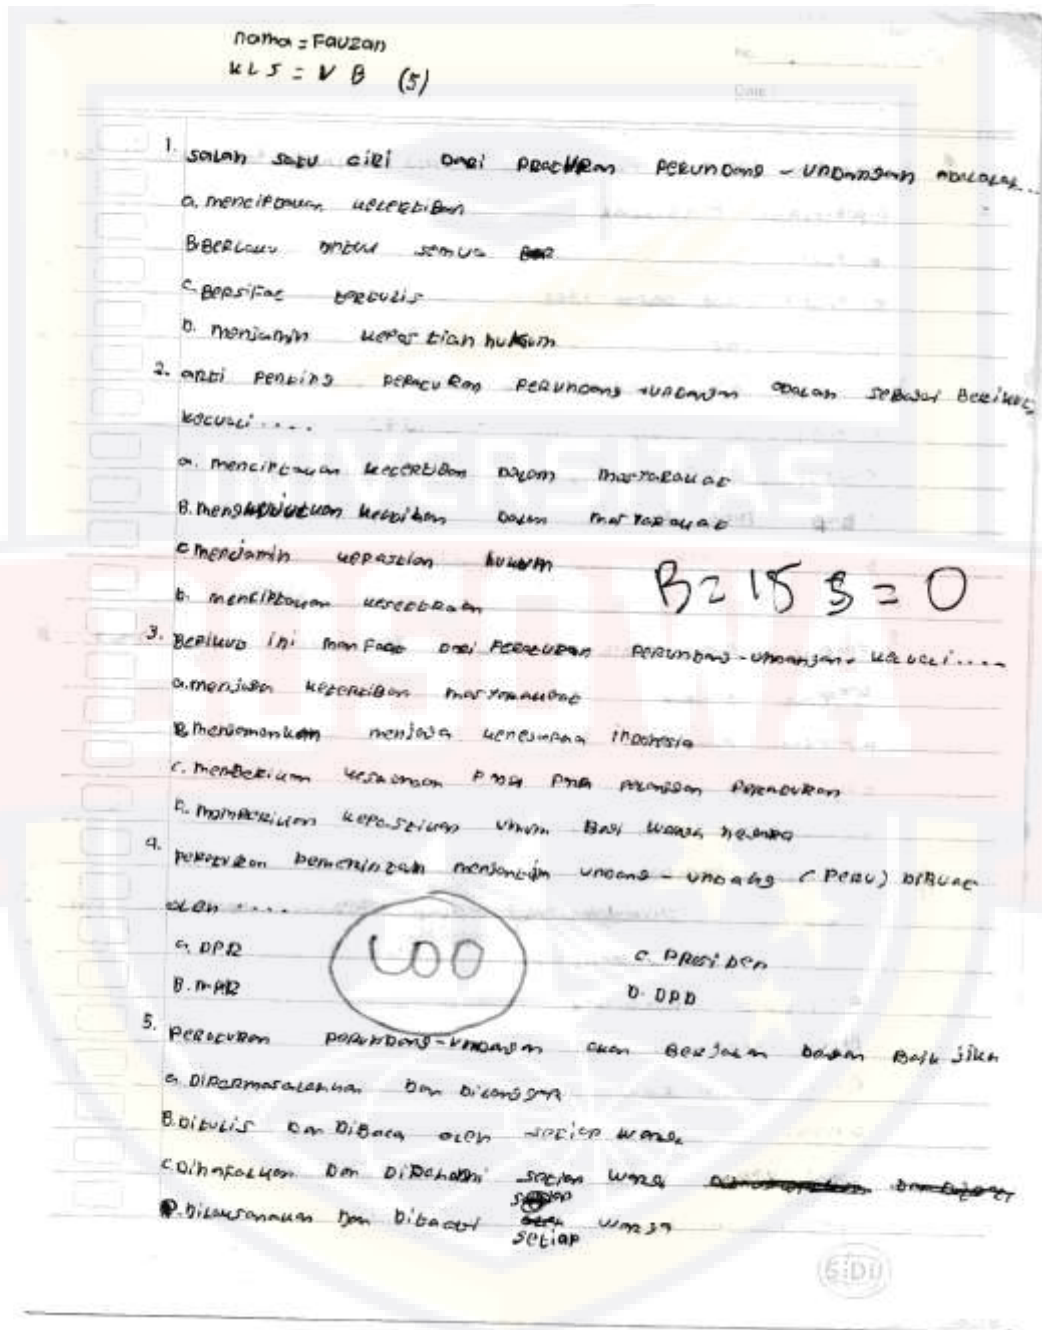 nama = Fauzan
KLS = V B (5)
Date:
1. salah satu ciri dari peraturan perundang - undangan adalah...
a. menciptakan ketertiban
B. Berlaku untuk semua
C. Bersifat tertulis
D. menjamin kepastian hukum
2. arti penting peraturan perundang - undangan adalah sebagai berikut,
kecuali ....
a. menciptakan ketertiban dalam masyarakat
B. dalam masyarakat
C menjamin kepastian hukum
D. menciptakan
B = 15 S = 0
3. Berikut ini manfaat dari peraturan perundang-undangan. kecuali ....
a. menjaga ketertiban masyarakat
B. menjaga indonesia
C. memberikan pada peraturan
D. memberikan kepastian umum Bagi warga negara
4. peraturan pemerintah undang - undang (PERU) DIBUAT
oleh ....
a. DPR
C. Presiden
100
B. MPR
D. DPD
5. peraturan perundang-undangan akan Berjalan dengan Baik jika
a. Dipermasalahkan Dan Dilanggar
B. Ditulis Dan DiBaca oleh setiap warga
C. Dihafalkan Dan Dipahami setiap warga
D. Dilaksanakan Dan Ditaati setiap warga
SiDU
UNIVERSITAS
BOSOWA